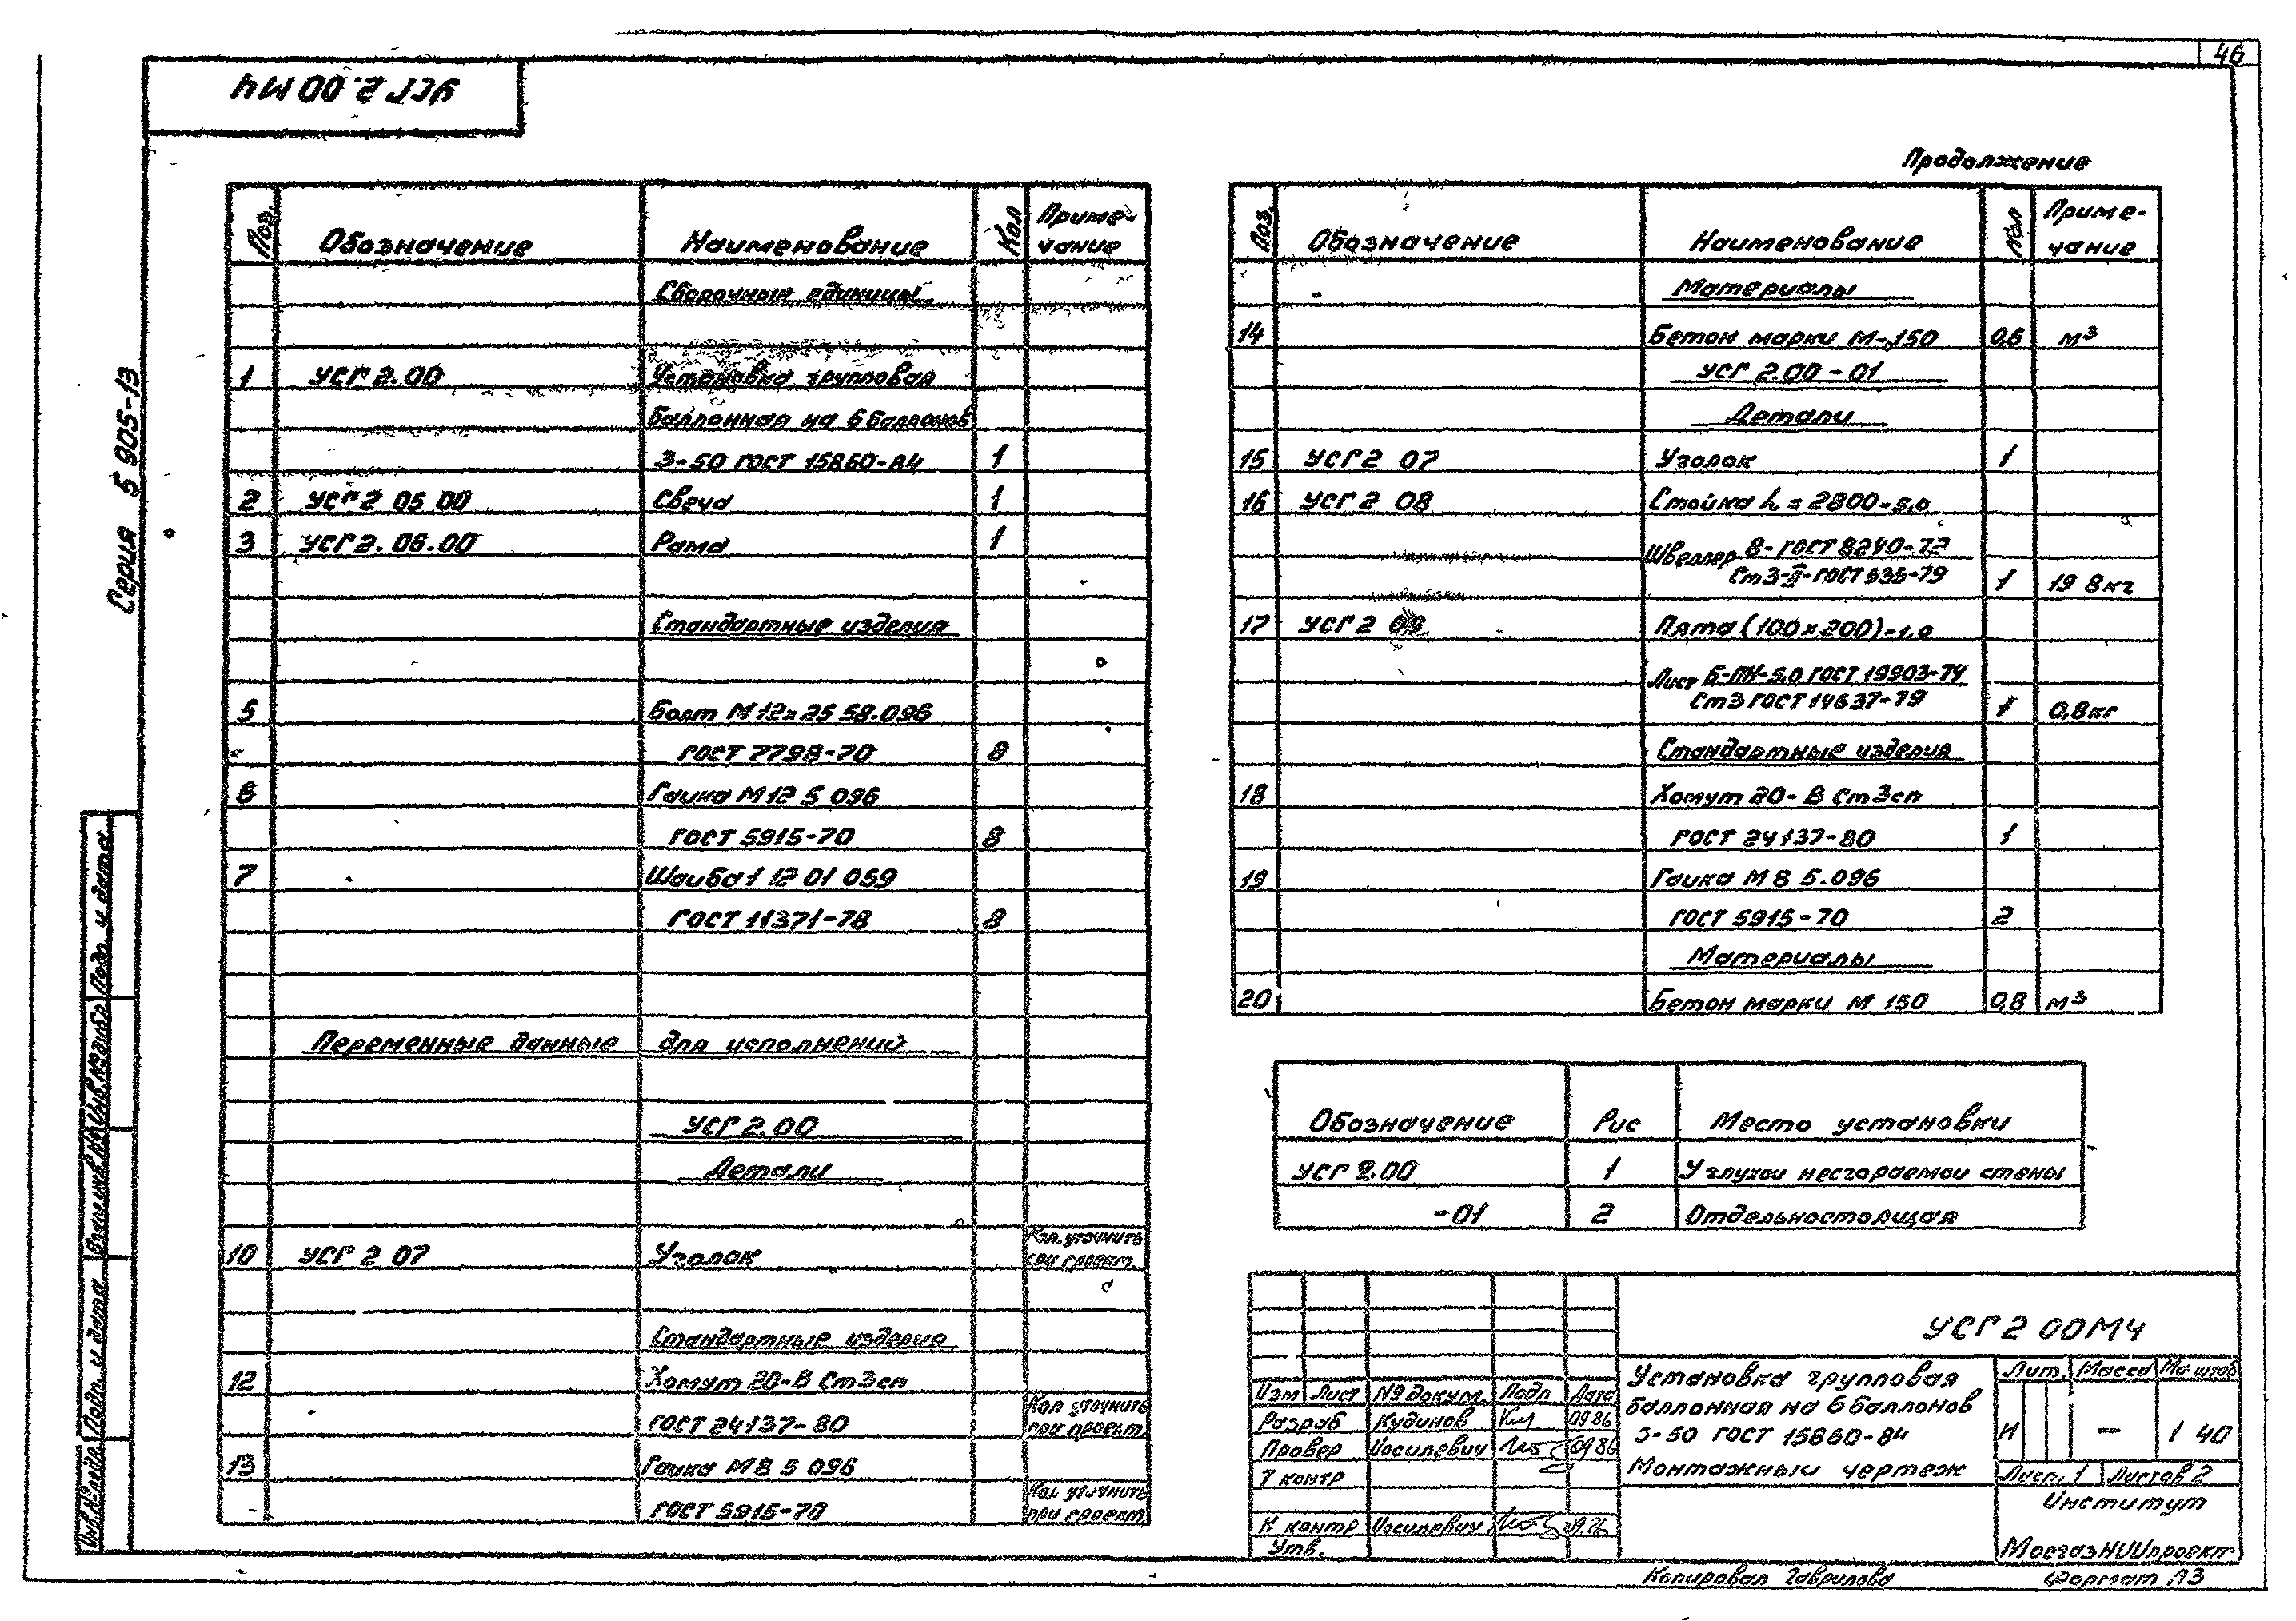 46
УСГ 2.00 МЧ
Серия 5 905-13
Поз. Обозначение Наименование Кол Приме-
чание
Сборочные единицы
1 УСГ 2.00 Установка групповая
баллонная на 6 баллонов
3-50 ГОСТ 15860-84 1
2 УСГ 2 05 00 Свеча 1
3 УСГ 2. 06.00 Рама 1
Стандартные изделия
5 Болт М 12х25 58.096
ГОСТ 7798-70 8
6 Гайка М 12 5 096
ГОСТ 5915-70 8
7 Шайба 1 12 01 059
ГОСТ 11371-78 8
Переменные данные для исполнений
УСГ 2.00
Детали
10 УСГ 2 07 Уголок Кол. уточнить
при проект.
Стандартные изделия
12 Хомут 20-В Ст3сп
ГОСТ 24137-80 Кол уточнить
при проект.
13 Гайка М8 5 096
ГОСТ 5915-70 Кол уточнить
при проект.
Продолжение
Поз. Обозначение Наименование Кол Приме-
чание
Материалы
14 Бетон марки М-150 0,6 м³
УСГ 2.00-01
Детали
15 УСГ 2 07 Уголок 1
16 УСГ 2 08 Стойка h = 2800-5,0
Швеллер 8-ГОСТ 8240-72
Ст3-II-ГОСТ 535-79 1 19 8 кг
17 УСГ 2 09 Пята (100х200)-1,0
Лист Б-ПН-5,0 ГОСТ 19903-74
Ст3 ГОСТ 14637-79 1 0,8 кг
Стандартные изделия
18 Хомут 20-В Ст3сп
ГОСТ 24137-80 1
19 Гайка М 8 5.096
ГОСТ 5915-70 2
Материалы
20 Бетон марки М 150 0,8 м³
Обозначение Рис Место установки
УСГ 2.00 1 У глухой несгораемой стены
-01 2 Отдельностоящая
УСГ 2 00МЧ
Установка групповая
баллонная на 6 баллонов
3-50 ГОСТ 15860-84
Монтажный чертеж
Лит. Масса Масштаб
И — 1 40
Лист. 1 Листов 2
Институт
МосгазНИИпроект
Изм Лист № докум. Подп Дата
Разраб Кудинов 09 86
Провер Иосилевич 09 86
Т контр
Н контр Иосилевич 09.86
Утв.
Копировал Гаврилова Формат А3
Подп. и дата
Инв. № дубл
Взам. инв. №
Подп. и дата
Инв. № подл.